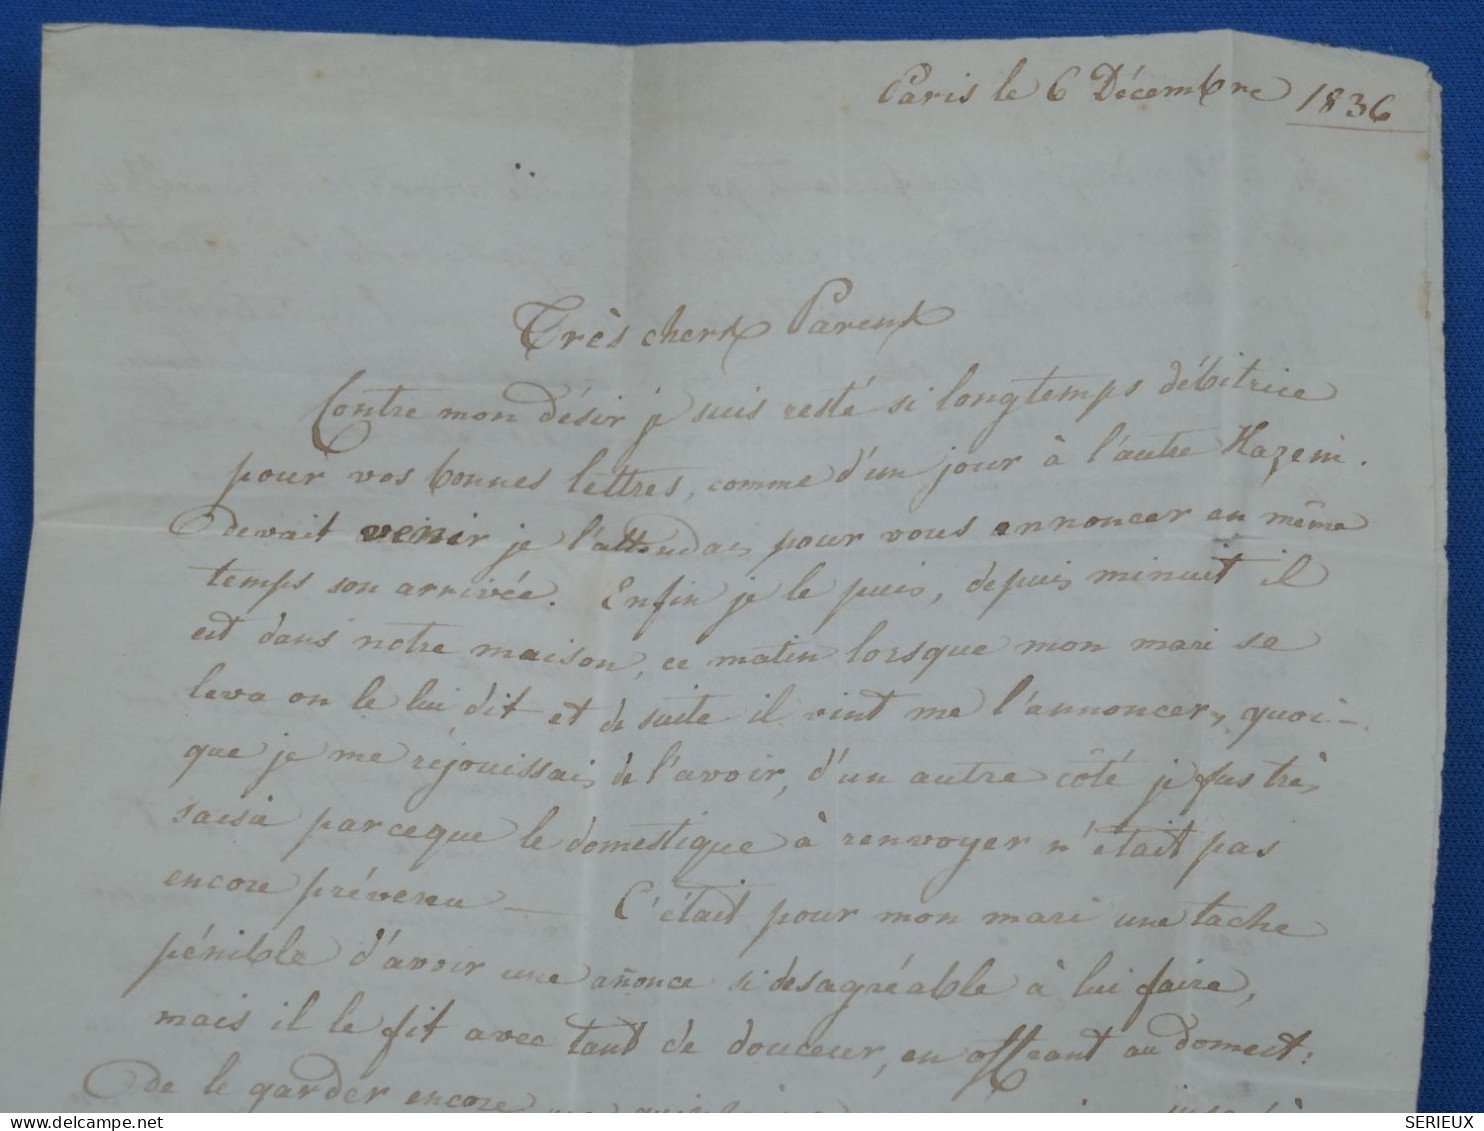 Paris le 6 Décembre 1836
Très chers Parents
Contre mon désir je suis resté si longtemps débitrice
pour vos bonnes lettres, comme d'un jour à l'autre Hazeni.
devait venir je l'attendais pour vous annoncer en même
temps son arrivée. Enfin je le puis, depuis minuit il
est dans notre maison, ce matin lorsque mon mari se
leva on le lui dit et de suite il vint me l'annoncer, quoi-
que je me réjouissais de l'avoir, d'un autre côté je fus très
saisie parceque le domestique à renvoyer n'était pas
encore prévenu — C'était pour mon mari une tache
pénible d'avoir une anonce si desagréable à lui faire,
mais il le fit avec tant de douceur, en offrant au domest:
de le garder encore
SERIEUX